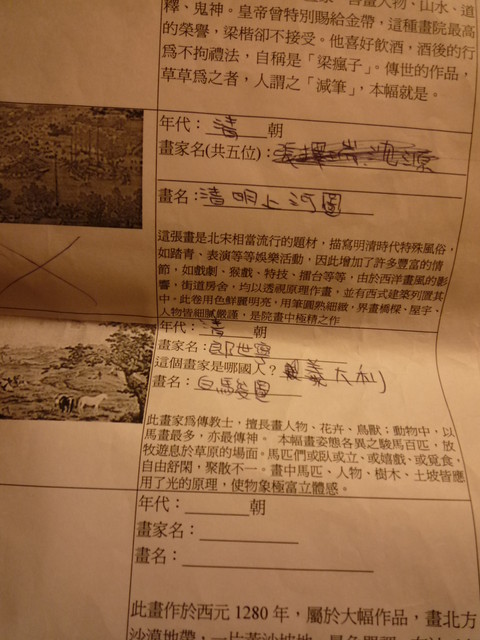 畫人物、山水、道
釋、鬼神。皇帝曾特別賜給金帶，這種畫院最高
的榮譽，梁楷卻不接受。他喜好飲酒，酒後的行
為不拘禮法，自稱是「梁瘋子」。傳世的作品，
草草為之者，人謂之「減筆」，本幅就是。
年代：清朝
畫家名(共五位)：
畫名：清明上河圖
這張畫是北宋相當流行的題材，描寫明清時代特殊風俗，
如踏青、表演等等娛樂活動，因此增加了許多豐富的情
節，如戲劇、猴戲、特技、擂台等等，由於西洋畫風的影
響，街道房舍，均以透視原理作畫，並有西式建築列置其
中。此卷用色鮮麗明亮，用筆圓熟細緻，界畫橋樑、屋宇、
人物皆細膩嚴謹，是院畫中極精之作
年代：清朝
畫家名：郎世寧
這個畫家是哪國人？義大利
畫名：白馬駿圖
此畫家為傳教士，擅長畫人物、花卉、鳥獸；動物中，以
馬畫最多，亦最傳神。 本幅畫姿態各異之駿馬百匹，放
牧遊息於草原的場面。馬匹們或臥或立、或嬉戲、或覓食，
自由舒閑，聚散不一。畫中馬匹、人物、樹木、土坡皆應
用了光的原理，使物象極富立體感。
年代：______朝
畫家名：__________
畫名：____________
此畫作於西元 1280 年，屬於大幅作品，畫北方
沙漠地帶，一片黃沙坡地